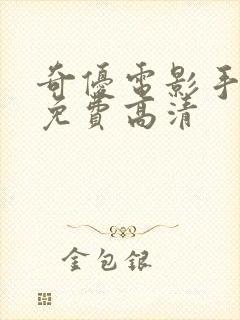 奇優電影手
免費高清
金包銀